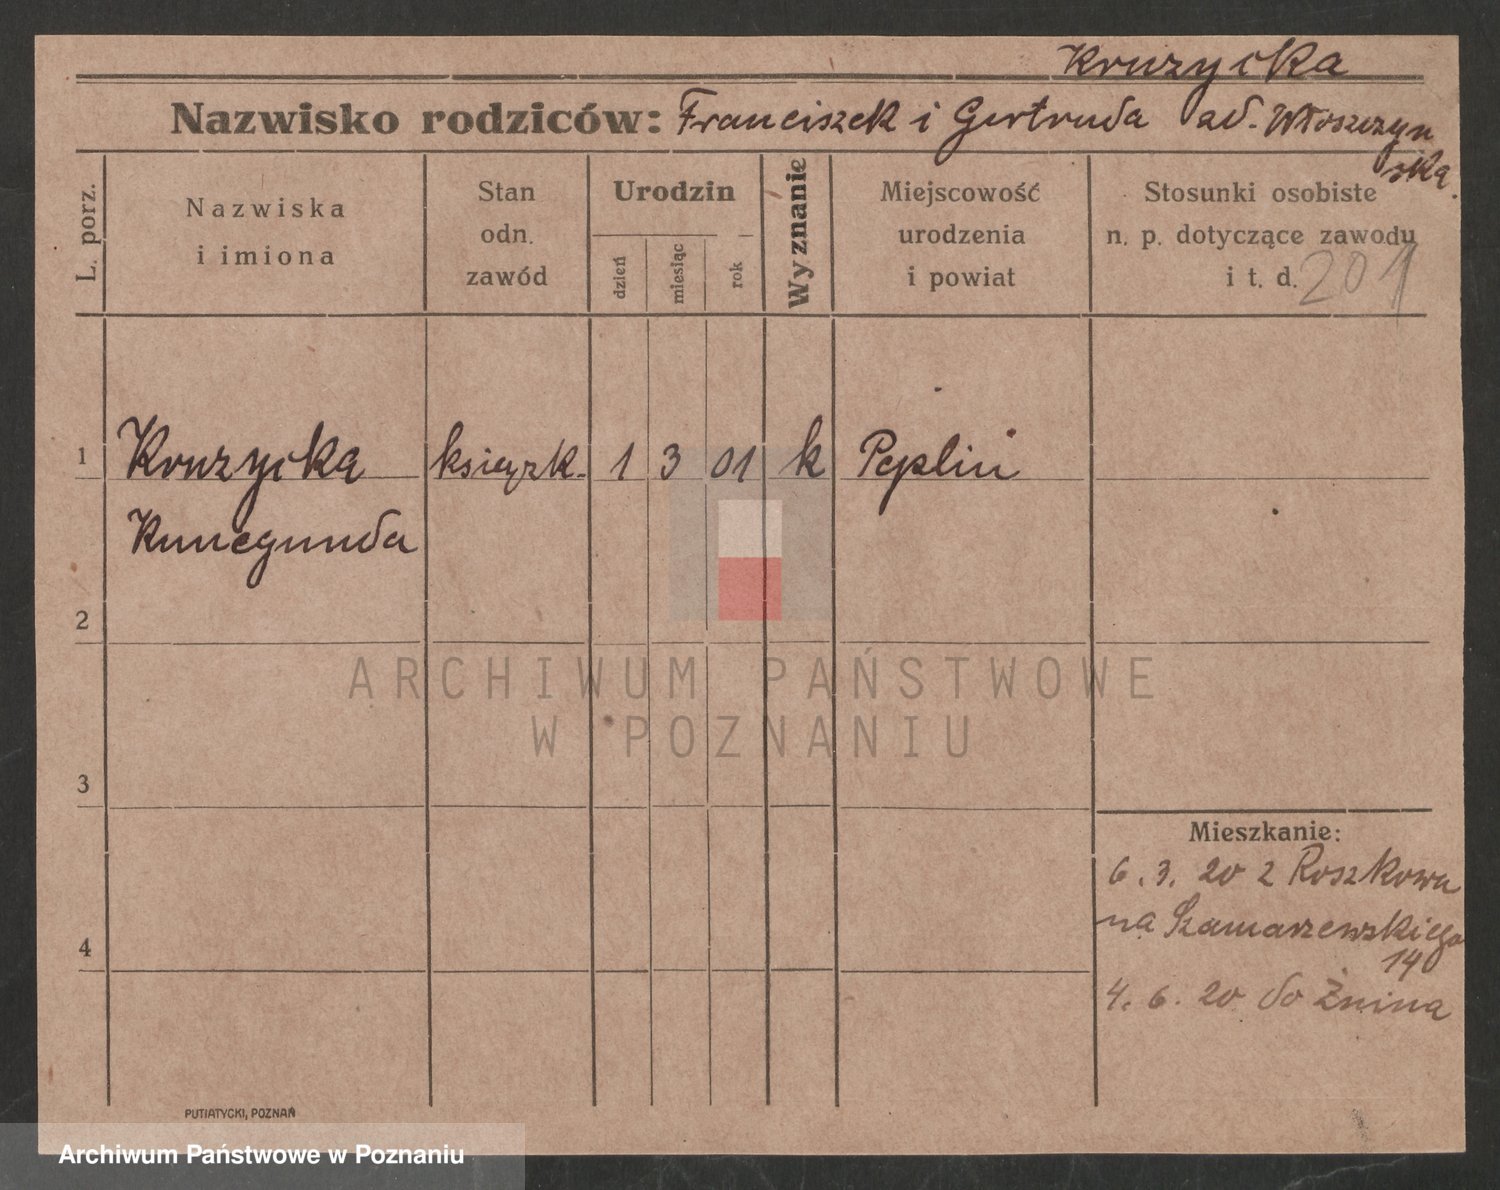 Kruzycka
Nazwisko rodziców: Franciszek i Gertruda zd. Włoszczyn
ska.
L. porz.
Nazwiska
i imiona
Stan
odn.
zawód
Urodzin
dzień
miesiąc
rok
Wyznanie
Miejscowość
urodzenia
i powiat
Stosunki osobiste
n. p. dotyczące zawodu
i t. d.
201
1 Kruzycka książk. 1 3 01 k Peplin
Kunegunda
2
3
4
Mieszkanie:
6. 3. 20 z Roszkowa
na Szamarzewskiego
14
4. 6. 20 do Żnina
PUTIATYCKI, POZNAŃ
ARCHIWUM PAŃSTWOWE
W POZNANIU
Archiwum Państwowe w Poznaniu